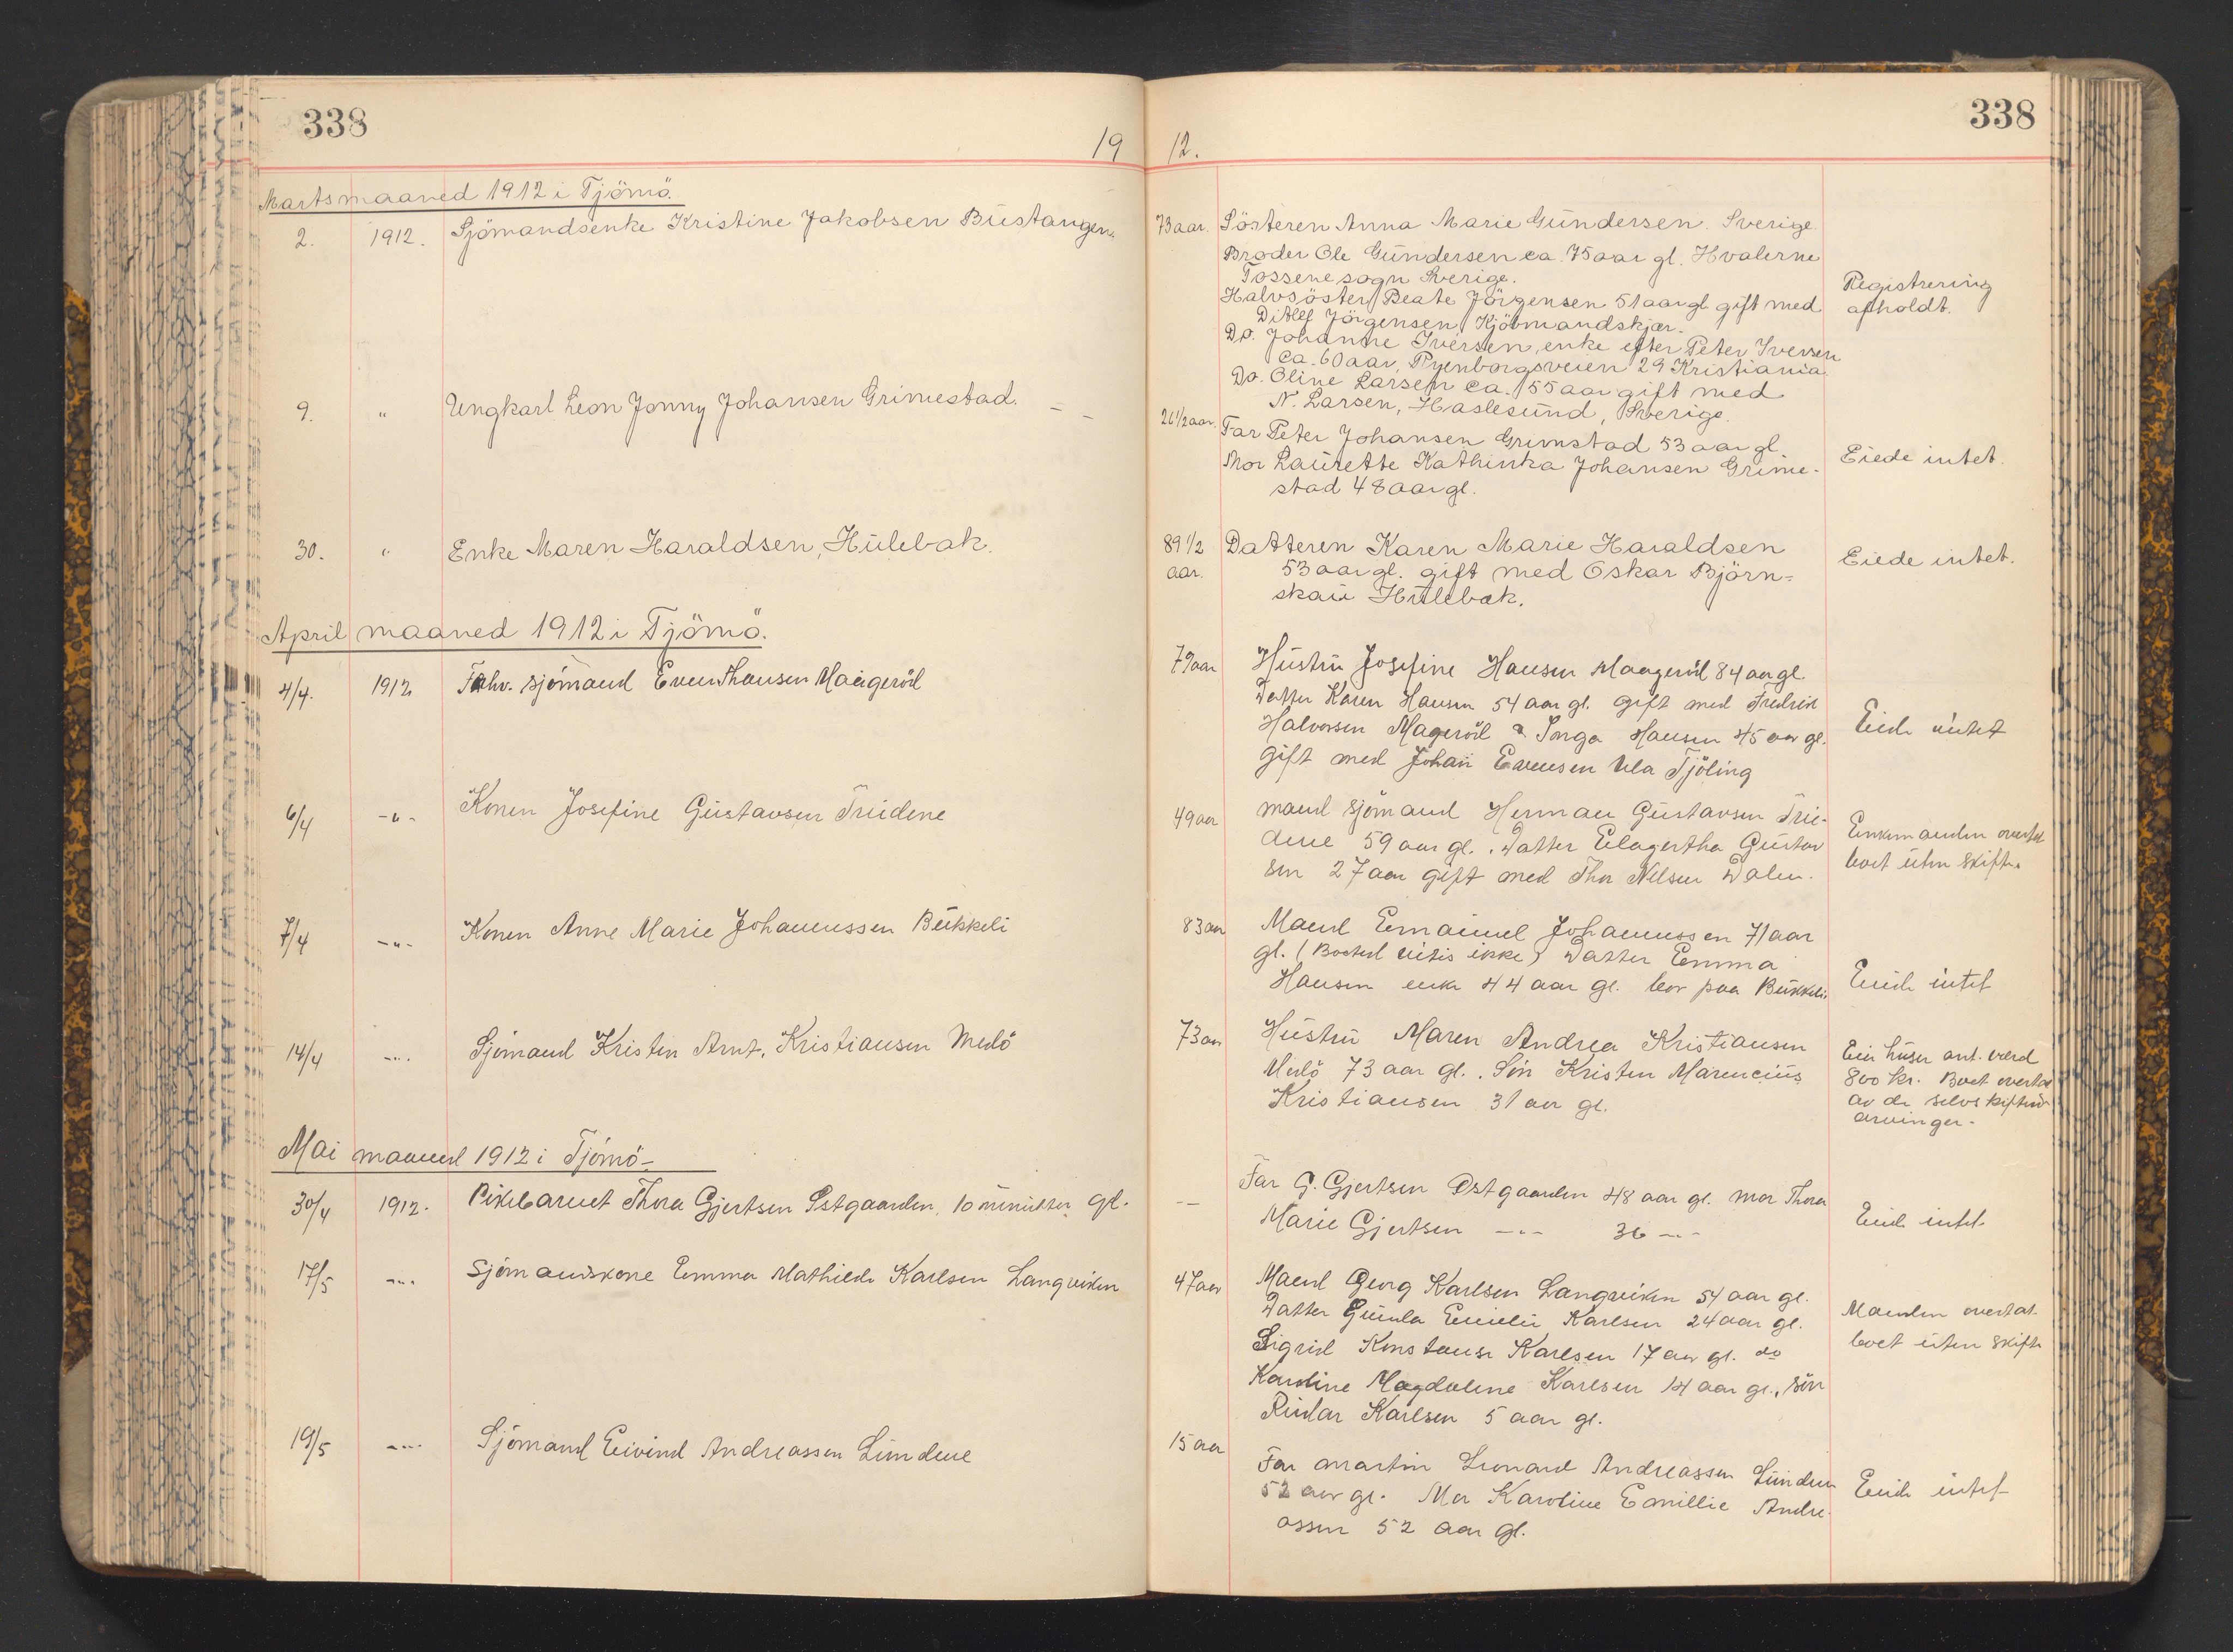 338
338
19 12.
Martsmaaned 1912 i Tjömö.
2. 1912. Sjömandsenke Kristine Jakobsen Bustangen. 73 aar.
Sösteren Anna Marie Gundersen. Sverige.
Broder Ole Gundersen ca. 75 aar gl. Hvalerne
Tossene sogn Sverige.
Halvsöster Beate Jörgensen 51 aar gl gift med
Ditlef Jörgensen, Kjömandskjær.
Do. Johanne Iversen, enke efter Peter Iversen
ca. 60 aar, Ryenborgsveien 29 Kristiania
Do. Oline Larsen ca. 55 aar gift med
N. Larsen, Haslesund, Sverige.
Registrering
afholdt.
9. " Ungkarl Leon Jonny Johansen Grimestad. - - 26 1/2 aar.
Far Peter Johansen Grimstad 53 aar gl.
Mor Laurette Kathinka Johansen Grime-
stad 48 aar gl.
Eiede intet.
30. " Enke Maren Haraldsen, Hulebak. 89 1/2
aar.
Datteren Karen Marie Haraldsen
53 aar gl. gift med Oskar Björn-
skau Hulebak.
Eiede intet.
April maaned 1912 i Tjömö.
4/4. 1912 Fhv. sjömand Even Hansen Maageröd 79 aar
Hustru Josefine Hansen Maageröd 84 aar gl.
Datter Karen Hansen 54 aar gl. gift med Fredrik
Halvorsen Mageröd Hansen 45 aar gl.
gift med Johan Evensen Ula Tjöling
Eiede intet
6/4 -"- Konen Josefine Gustavsen Truidene 49 aar
mand sjömand Herman Gustavsen Trui-
dene 59 aar gl. Datter Elagertha Gustav
sen 27 aar gift med Thor Nilsen Dalen.
Enkemanden overtok
boet uten skifte.
7/4 -"- Konen Anne Marie Johannessen Bukkeli 83 aar
Mand Emanuel Johannessen 71 aar
gl. (Bosted vites ikke) Datter Emma
Hansen enke 44 aar gl. bor paa Bukkeli
Eiede intet
14/4 -"- Sjömand Kristen Arnt. Kristiansen Medö 73 aar
Hustru Maren Andrea Kristiansen
Medö 73 aar gl. Sön Kristen Marencius
Kristiansen 31 aar gl.
Eier huser ant. værd
800 kr. Boet overtat
av de selvskiftende
arvinger.
Mai maaned 1912 i Tjömö-
30/4 1912. Pikebarnet Thora Gjertsen Østgaarden. 10 minutter gl. -
Far G. Gjertsen Østgaarden 48 aar gl. mor Thora
Marie Gjertsen -"- 36 -"-
Eiede intet
17/5 -"- Sjömandskone Emma Mathilde Karlsen Langviken 47 aar
Mand Georg Karlsen Langviken 54 aar gl.
Datter Gunda Emelie Karlsen 24 aar gl.
Sigrid Konstanse Karlsen 17 aar gl. do
Karoline Magdalene Karlsen 14 aar gl., sön
Reidar Karlsen 5 aar gl.
Manden overtat
boet uten skifte
19/5 -"- Sjömand Eivind Andreassen Lundene 15 aar
Far Martin Leonard Andreassen Lunden
52 aar gl. Mor Karoline Emillie Andre-
assen 52 aar gl.
Eiede intet